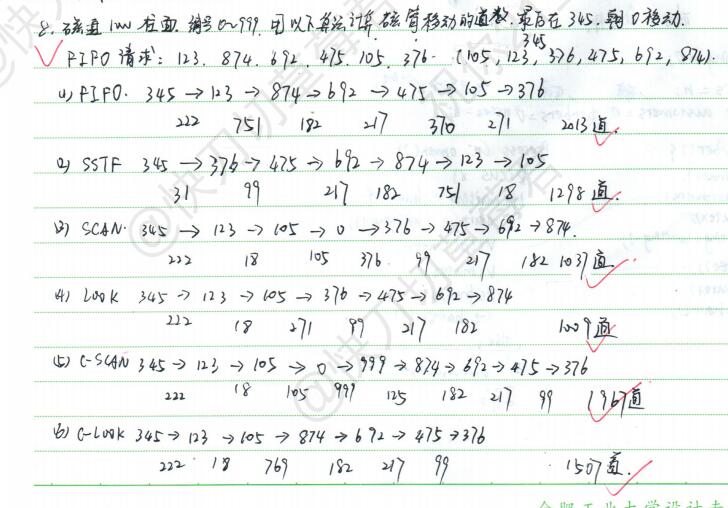 8. 磁盘 1000 柱面. 编号 0~999. 用以下算法计算磁臂移动的道数. 最后在 345. 朝 0 移动.
345
FIFO 请求: 123. 874. 692. 475. 105. 376. (105, 123, 376, 475, 692, 874).
(1) FIFO. 345 → 123 → 874 → 692 → 475 → 105 → 376
222 751 182 217 370 271 2013 道.
(2) SSTF 345 → 376 → 475 → 692 → 874 → 123 → 105
31 99 217 182 751 18 1298 道.
(3) SCAN. 345 → 123 → 105 → 0 → 376 → 475 → 692 → 874.
222 18 105 376 99 217 182 1037 道.
(4) LOOK 345 → 123 → 105 → 376 → 475 → 692 → 874
222 18 271 99 217 182 1009 道
(5) C-SCAN 345 → 123 → 105 → 0 → 999 → 874 → 692 → 475 → 376
222 18 105 999 125 182 217 99 1967 道
(6) C-LOOK 345 → 123 → 105 → 874 → 692 → 475 → 376
222 18 769 182 217 99 1507 道.